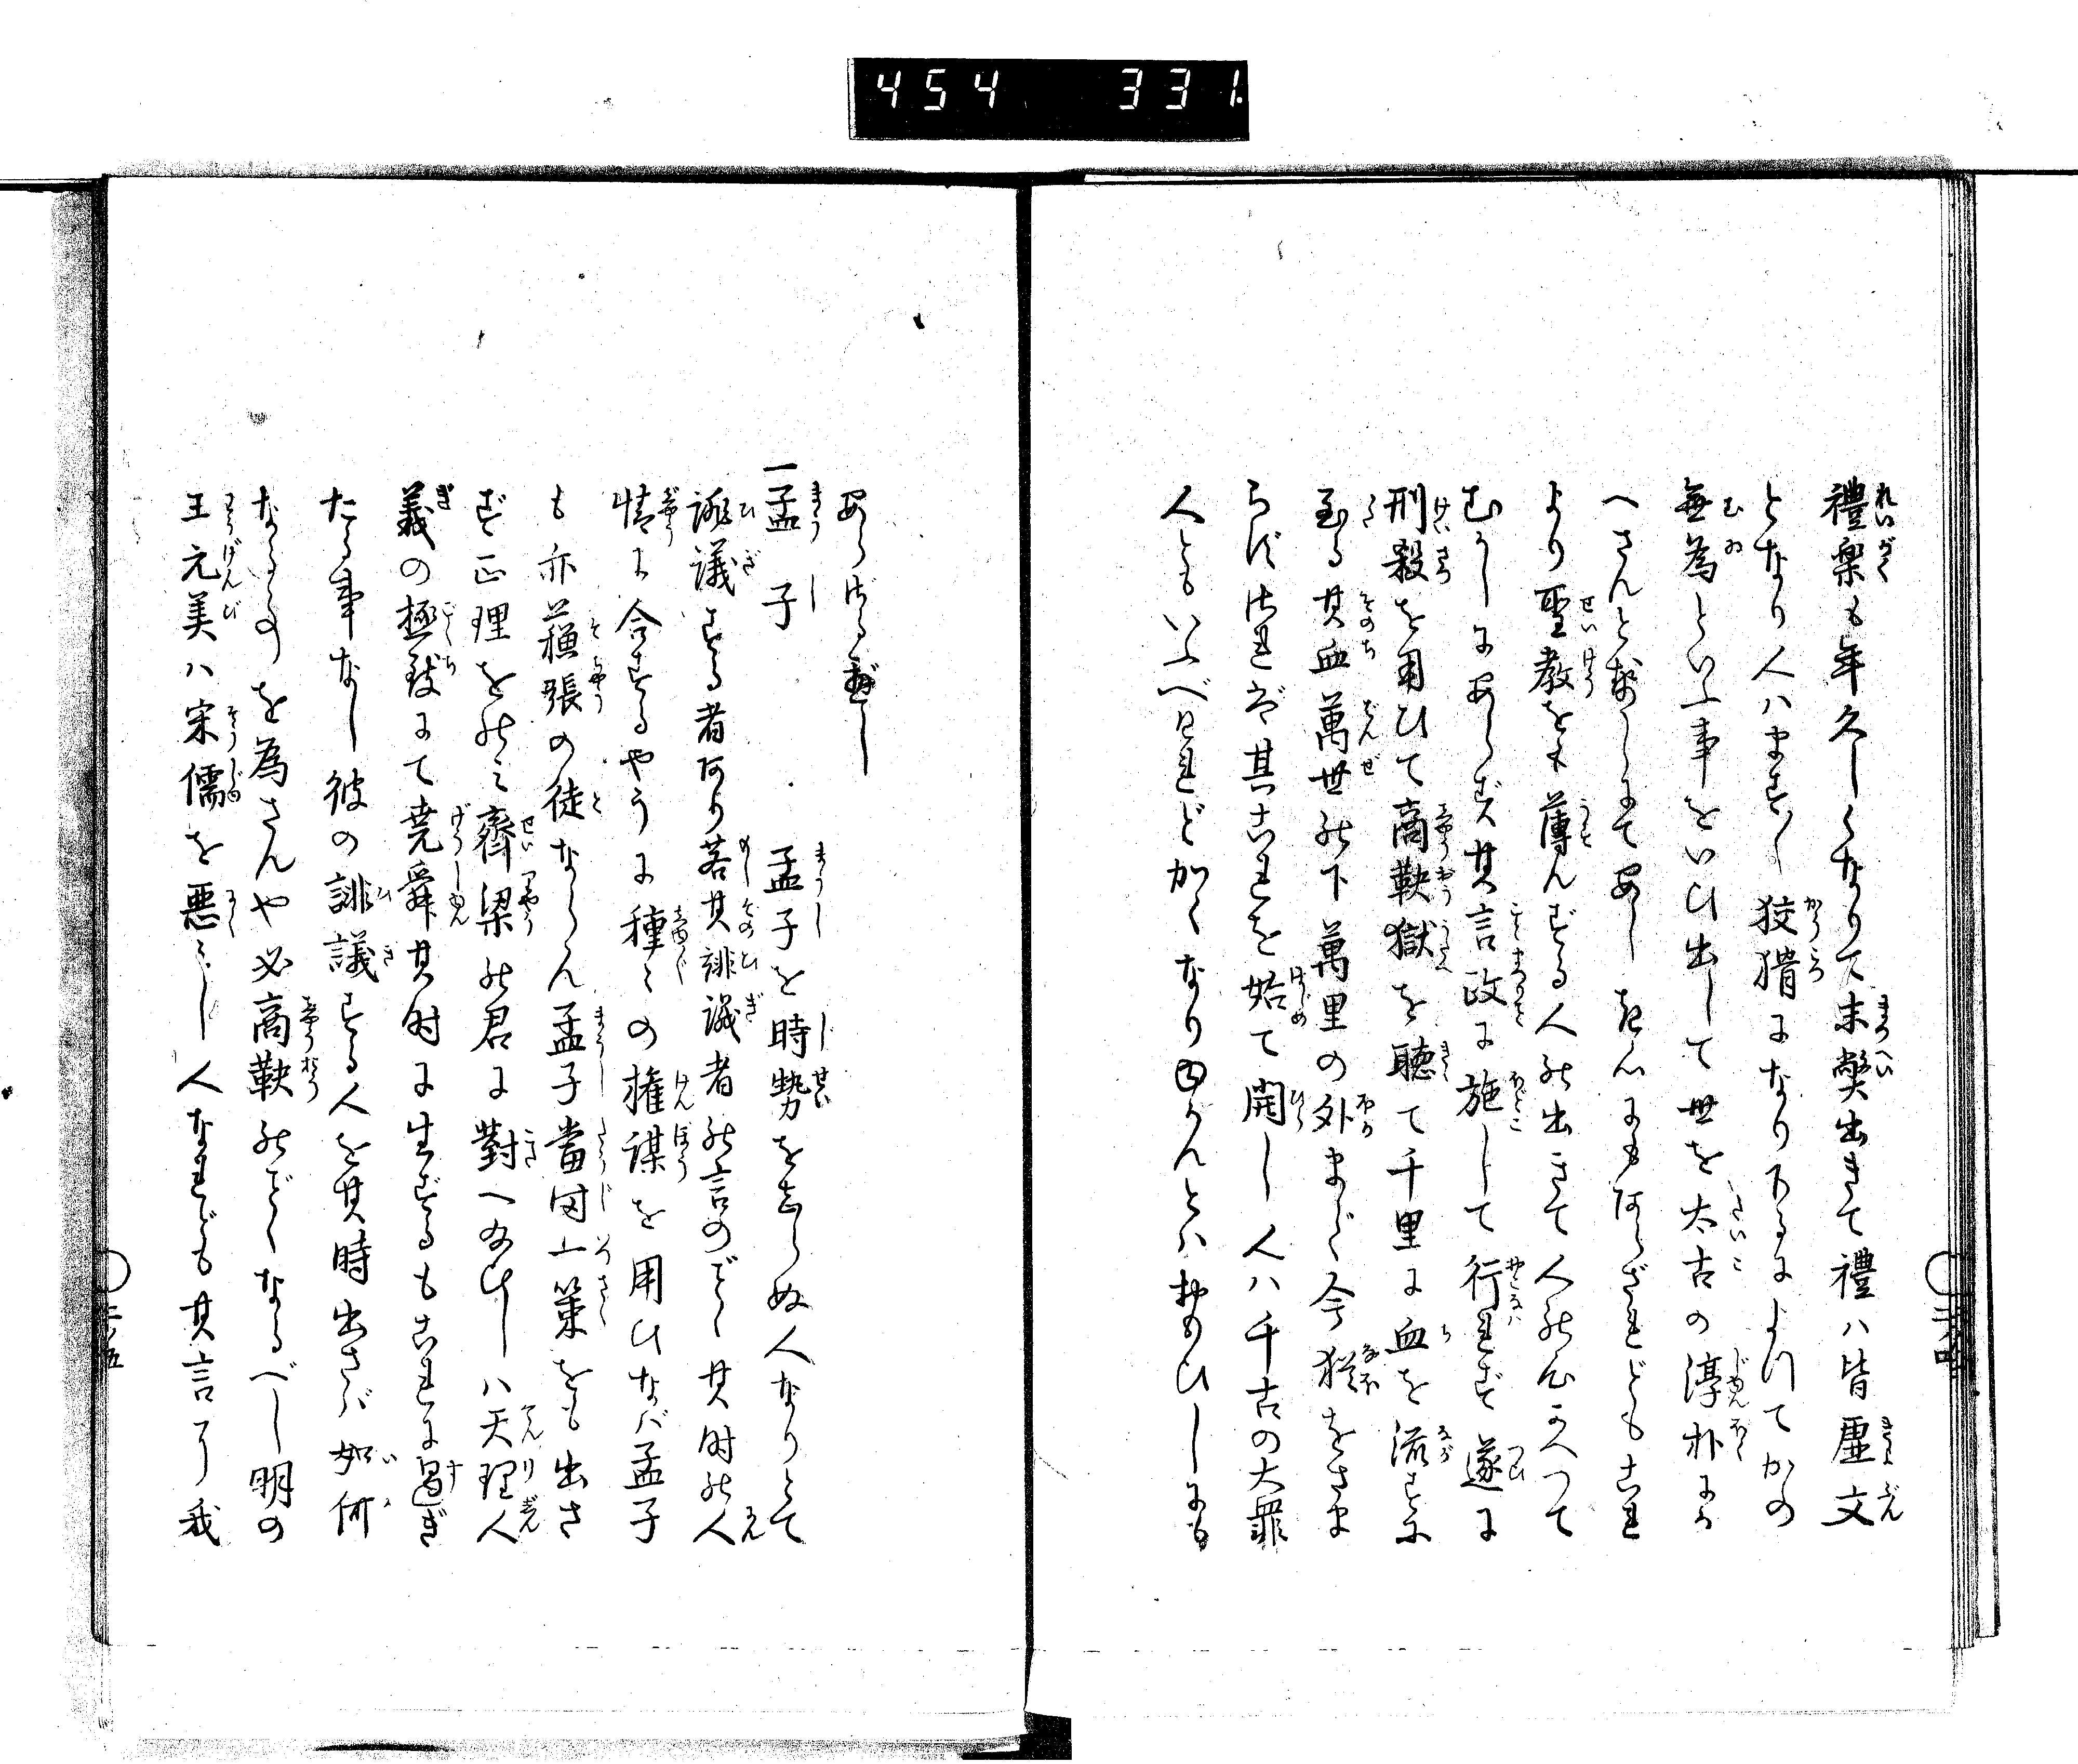 454 331
禮樂も年久しくなりて末弊出きて禮ハ皆虚文
となり人ハます〳〵狡猾になり下るによつてかの
無為といふ事をいひ出して世を太古の淳朴にか
へさんと

より聖教をも薄んずる人の出きて人の心かへつて
むかしにあらず其言政に施して行れず遂に
刑殺を用ひて商鞅獄を聴て千里に血を流すに
至る其血萬世の下萬里の外まで今猶をさま
らず されば其これを始て開し人ハ千古の大罪
人ともいふべけれどかくなりゆかんとハおもひしにも
あらざるべし
一孟子 孟子を時勢をしらぬ人なりとて
誹議する者あり若其誹議者の言のごく其時の人
情に合するやうに種々の権謀を用ひなバ孟子
も亦蘇張の徒ならん孟子當时一策をも出さ
ず正理をのミ齊梁の君に對へ給ひしハ天理人
義の極致にて堯舜其时に生ずるもこれに過ぎ
たる事なし彼の誹議する人を其時出さバ如何
なるものを為さんや必商鞅のごくなるべし明の
王元美ハ宋儒を悪ミし人なれども其言に我
二ノ四
二ノ五